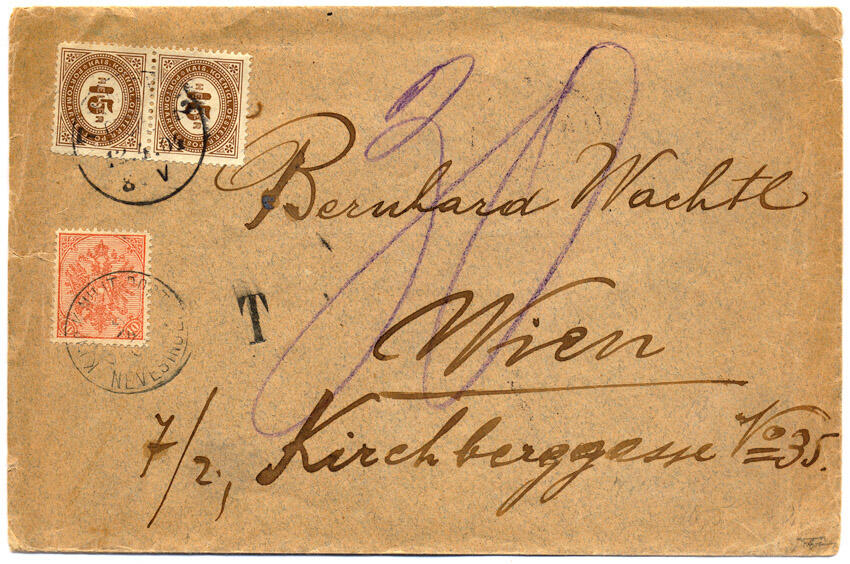 15 15
8 V
30
Bernhard Wachtl
T
Wien
NEVESINJE
7/2, Kirchberggasse No 35.